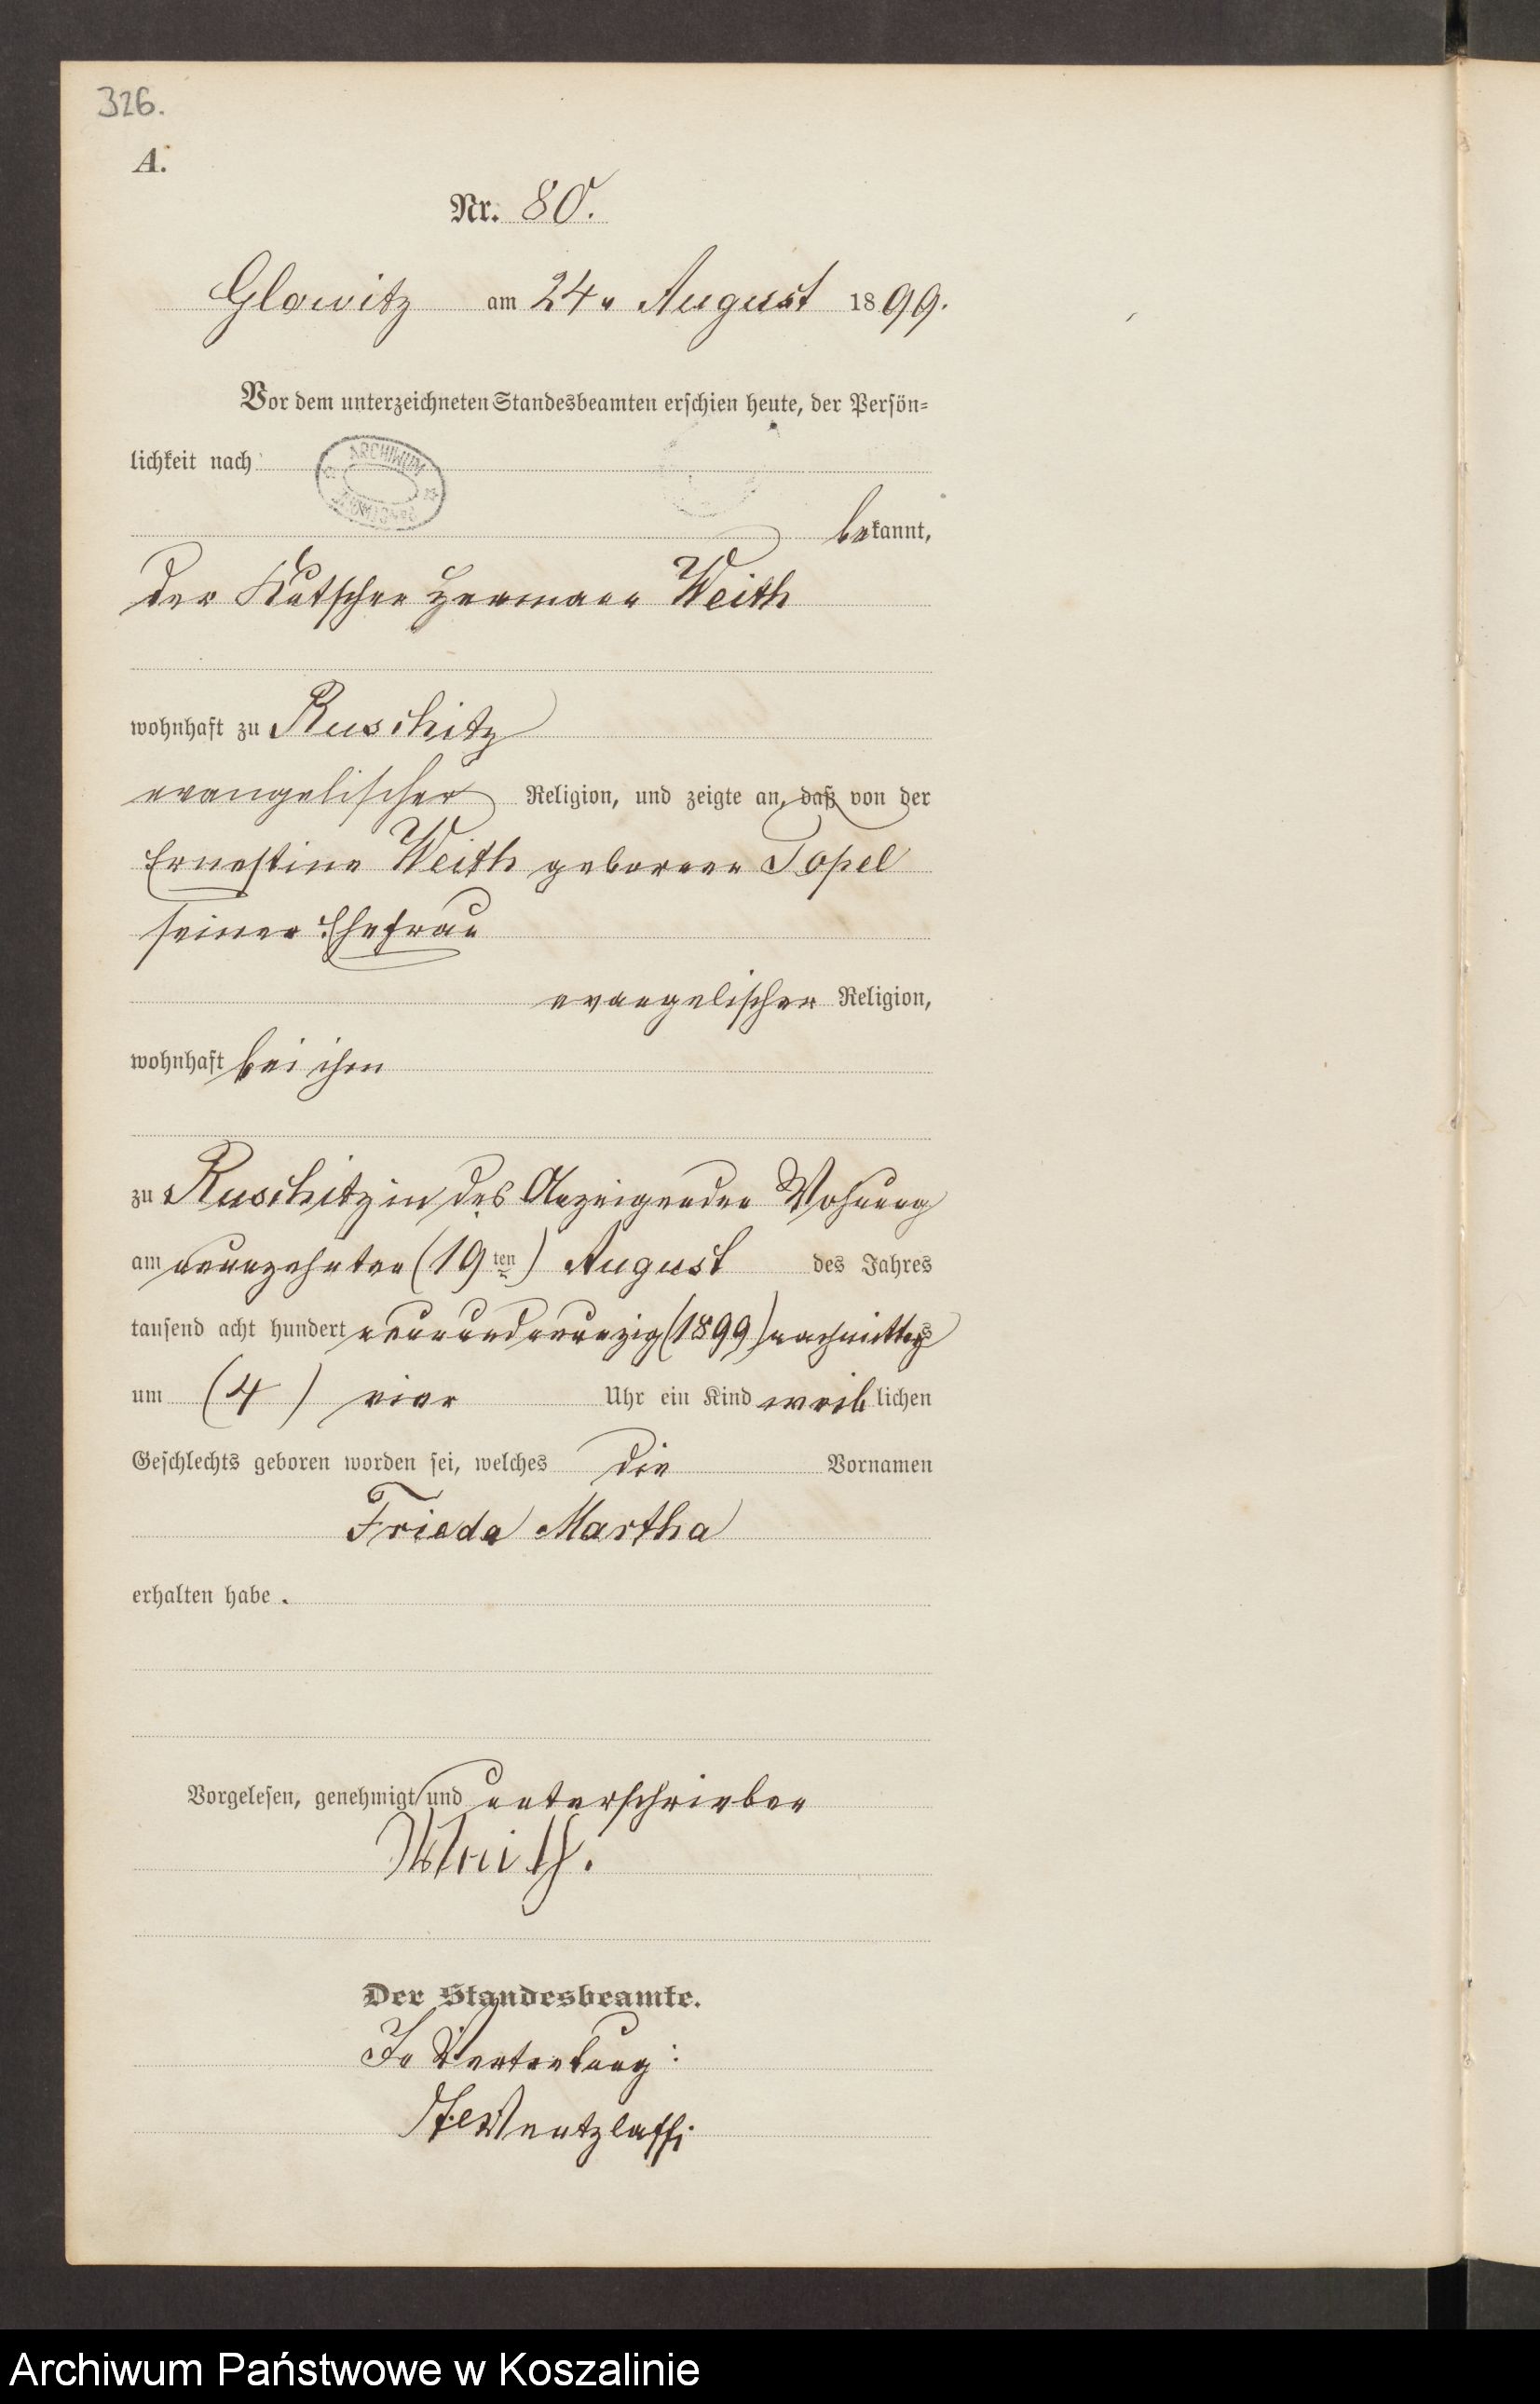 326.
A.
Nr. 80.
Glowitz am 24. August 1899.
Vor dem unterzeichneten Standesbeamten erschien heute, der Persön-
lichkeit nach
ARCHIWUM
bekannt,
der Kutscher Hermann Weith
wohnhaft zu Ruschitz
evangelischer Religion, und zeigte an, daß von der
Ernestine Weith geborenen Topel
seiner Ehefrau
evangelischer Religion,
wohnhaft bei ihm
zu Ruschitz in des Anzeigenden Wohnung
am neunzehnten (19ten) August des Jahres
tausend acht hundert neunundneunzig (1899) nachmittags
um (4) vier Uhr ein Kind weiblichen
Geschlechts geboren worden sei, welches die Vornamen
Frieda Martha
erhalten habe.
Vorgelesen, genehmigt und unterschrieben
Weith.
Der Standesbeamte.
In Vertretung:
Wentzlaff
Archiwum Państwowe w Koszalinie